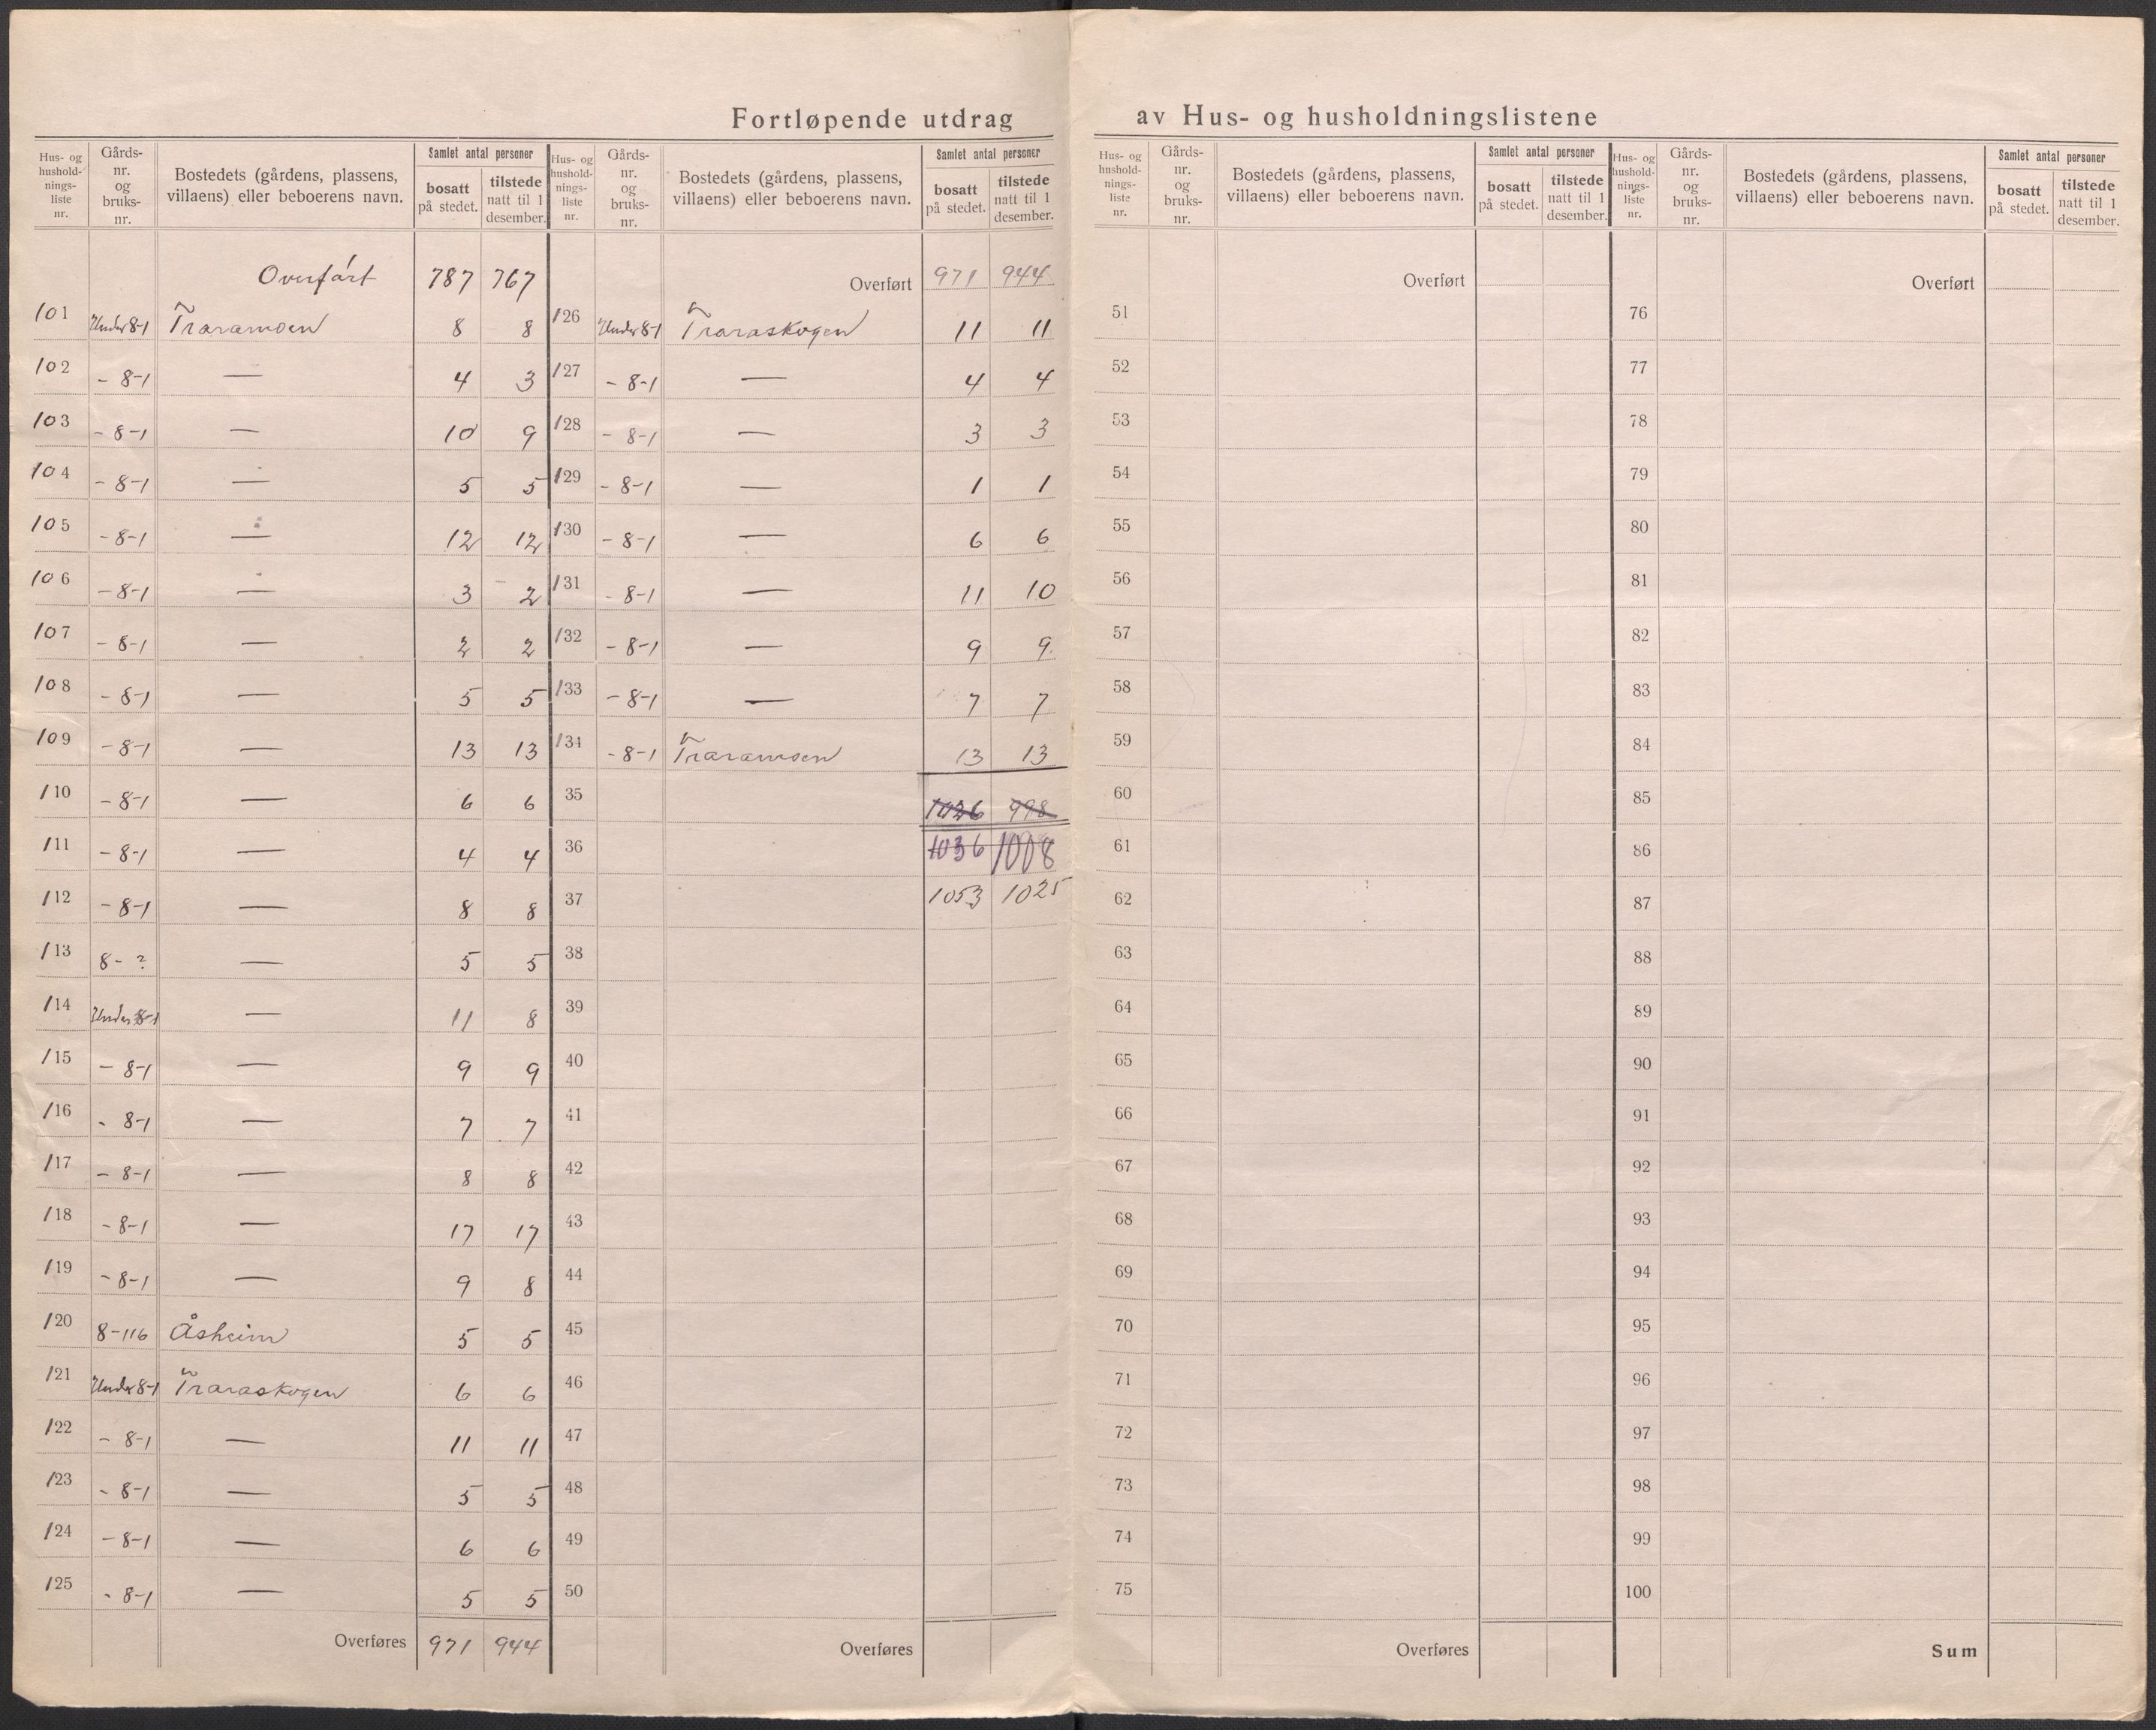 Fortløpende utdrag av Hus- og husholdningslistene
Hus- og hushold-nings-liste nr. Gårds-nr. og bruks-nr. Bostedets (gårdens, plassens, villaens) eller beboerens navn. Samlet antal personer bosatt på stedet. tilstede natt til 1 desember.
Overført 787 767
101 Under 8-1 Traramoen 8 8
102 - 8-1 — 4 3
103 - 8-1 — 10 9
104 - 8-1 — 5 5
105 - 8-1 — 12 12
106 - 8-1 — 3 2
107 - 8-1 — 2 2
108 - 8-1 — 5 5
109 - 8-1 — 13 13
110 - 8-1 — 6 6
111 - 8-1 — 4 4
112 - 8-1 — 8 8
113 8- ? — 5 5
114 Under 8-1 — 11 8
115 - 8-1 — 9 9
116 - 8-1 — 7 7
117 - 8-1 — 8 8
118 - 8-1 — 17 17
119 - 8-1 — 9 8
120 8-116 Åsheim 5 5
121 Under 8-1 Traraskogen 6 6
122 - 8-1 — 11 11
123 - 8-1 — 5 5
124 - 8-1 — 6 6
125 - 8-1 — 5 5
Overføres 971 944
Hus- og hushold-nings-liste nr. Gårds-nr. og bruks-nr. Bostedets (gårdens, plassens, villaens) eller beboerens navn. Samlet antal personer bosatt på stedet. tilstede natt til 1 desember.
Overført 971 944
126 Under 8-1 Traraskogen 11 11
127 - 8-1 — 4 4
128 - 8-1 — 3 3
129 - 8-1 — 1 1
130 - 8-1 — 6 6
131 - 8-1 — 11 10
132 - 8-1 — 9 9
133 - 8-1 — 7 7
134 - 8-1 Traramoen 13 13
35 1026 998
36 1036 1008
37 1053 1025
38
39
40
41
42
43
44
45
46
47
48
49
50
Overføres
Hus- og hushold-nings-liste nr. Gårds-nr. og bruks-nr. Bostedets (gårdens, plassens, villaens) eller beboerens navn. Samlet antal personer bosatt på stedet. tilstede natt til 1 desember.
Overført
51
52
53
54
55
56
57
58
59
60
61
62
63
64
65
66
67
68
69
70
71
72
73
74
75
Overføres
Hus- og hushold-nings-liste nr. Gårds-nr. og bruks-nr. Bostedets (gårdens, plassens, villaens) eller beboerens navn. Samlet antal personer bosatt på stedet. tilstede natt til 1 desember.
Overført
76
77
78
79
80
81
82
83
84
85
86
87
88
89
90
91
92
93
94
95
96
97
98
99
100
Sum